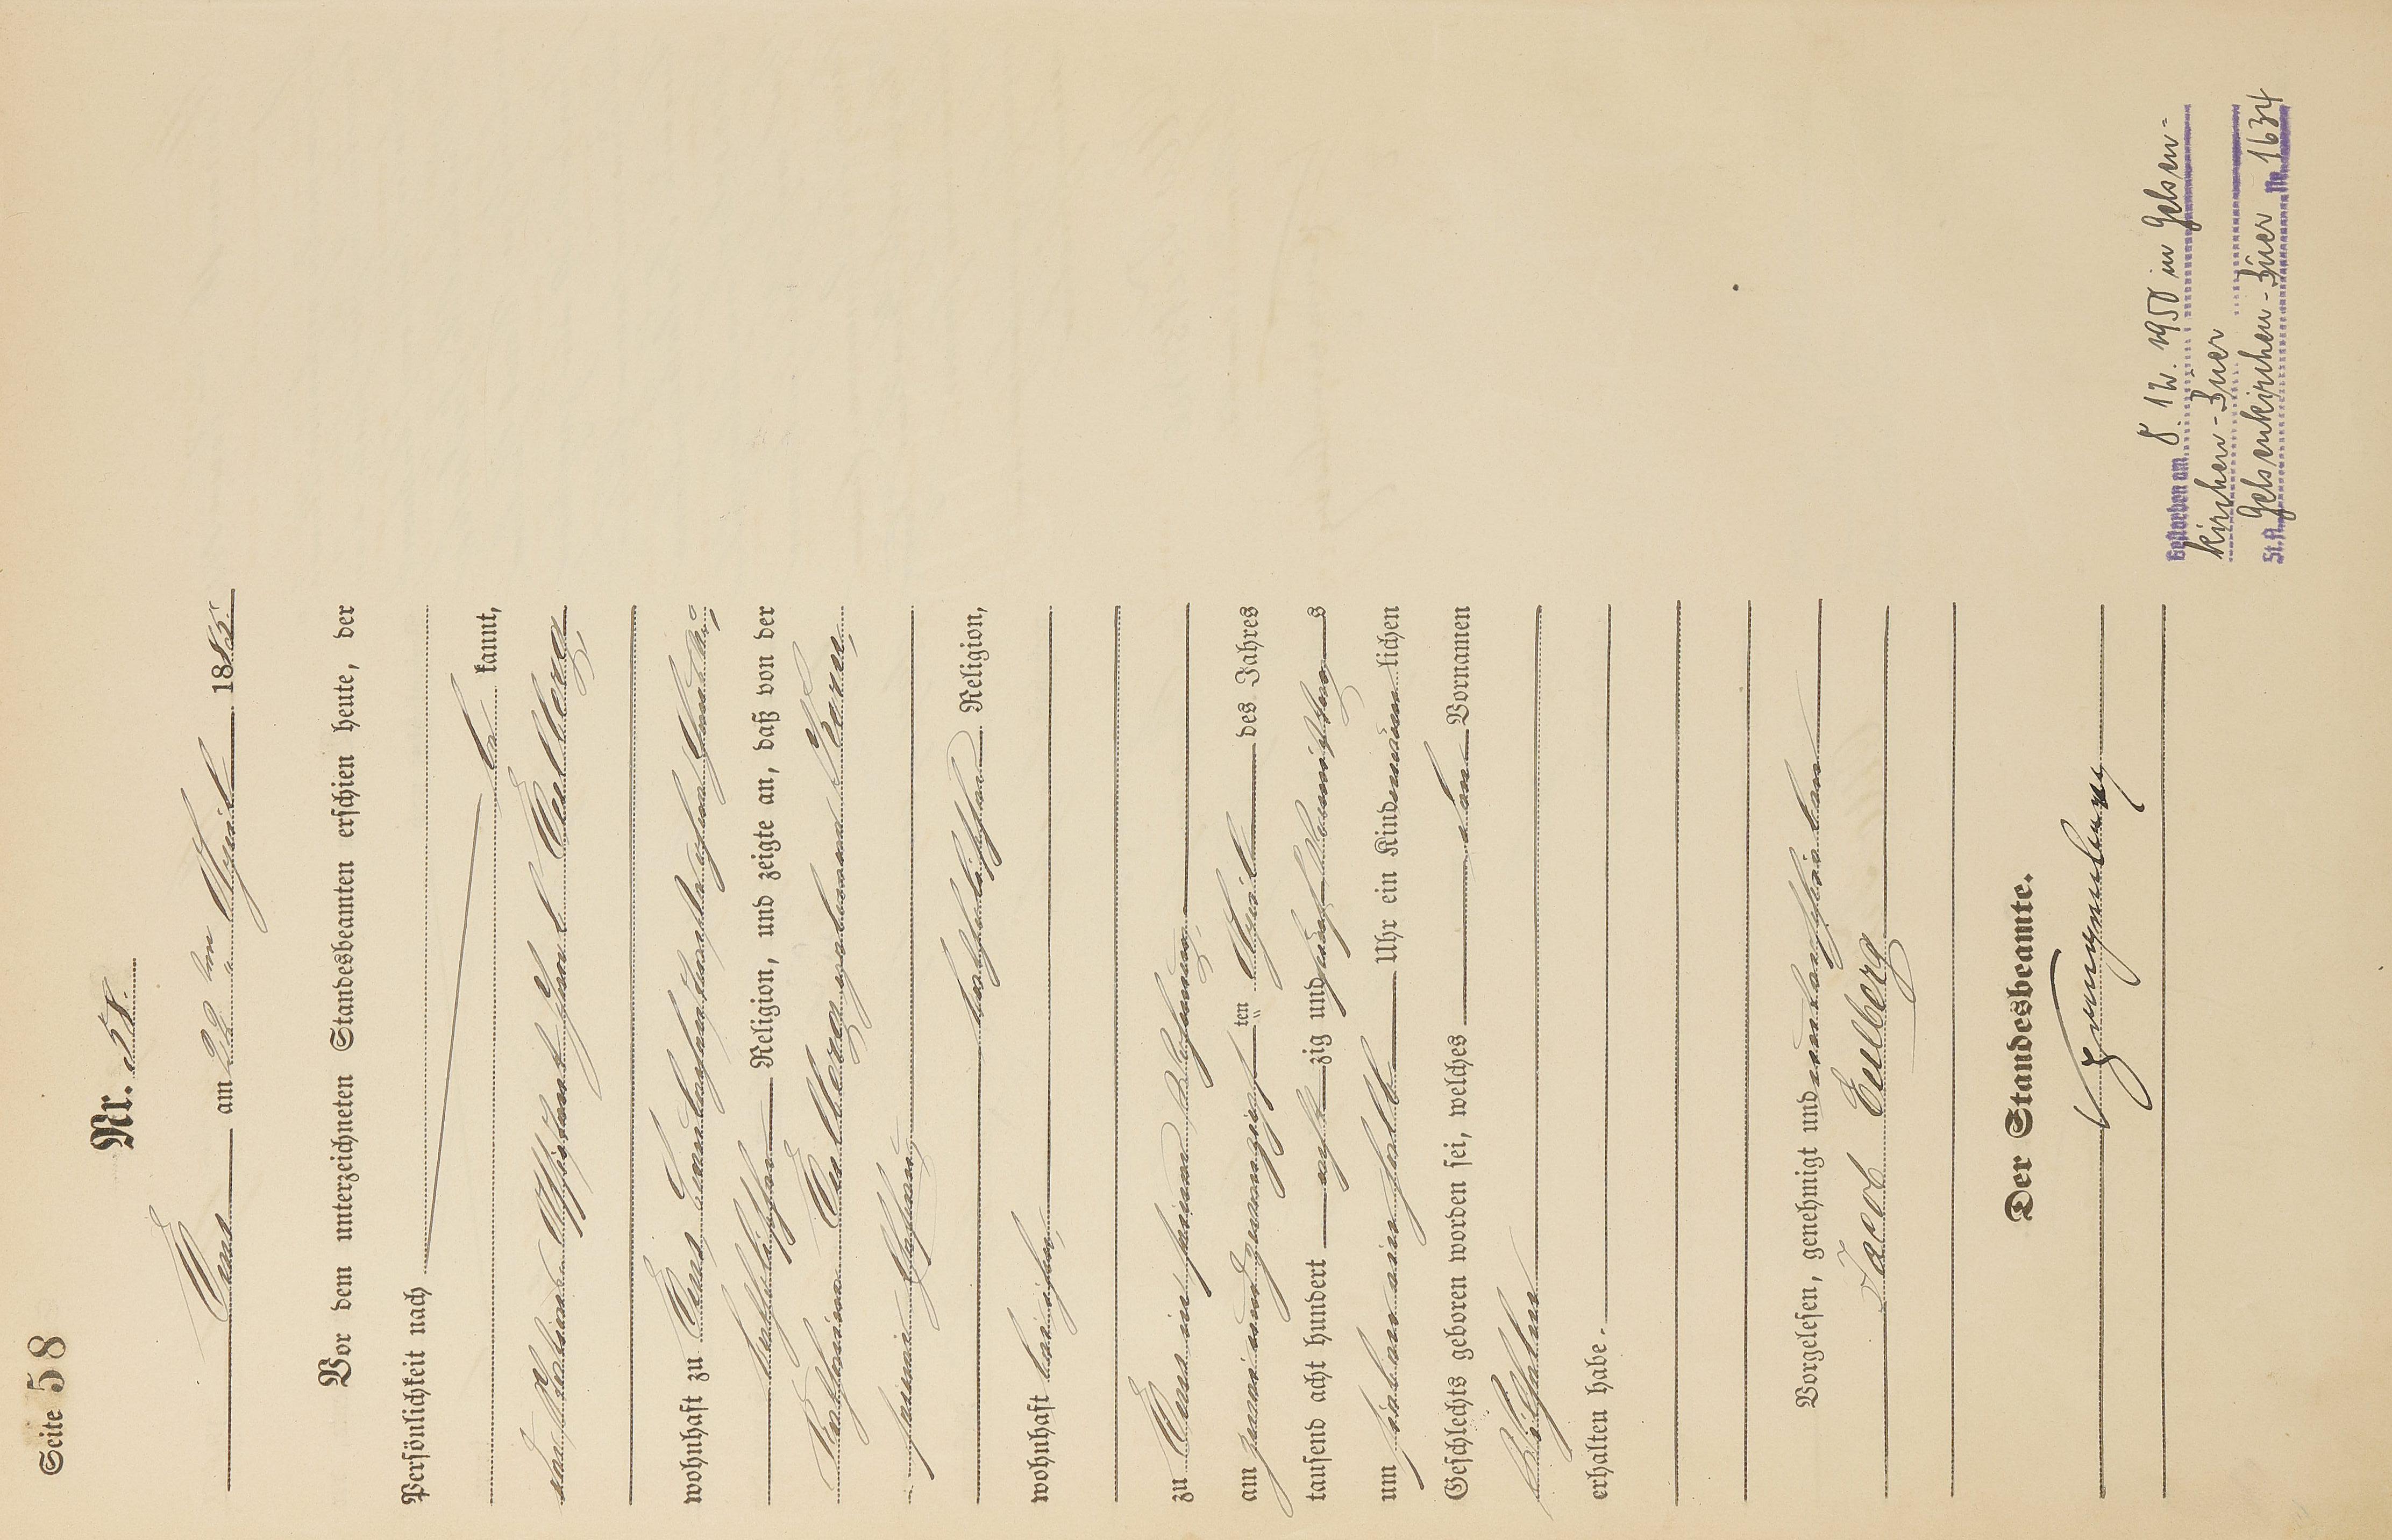 Seite 58
Nr. 58.
Ems am 22ten April 1885.
Vor dem unterzeichneten Standesbeamten erschien heute, der
Persönlichkeit nach
be kannt,
der Jacob Eulberg
wohnhaft zu Ems,
katholischer Religion, und zeigte an, daß von der
Eulberg geborenen
seiner Ehefrau,
katholischer Religion,
wohnhaft bei ihm,
zu Ems in seiner Wohnung,
am zwei und zwanzigsten April des Jahres
tausend acht hundert acht zig und fünf Vormittags
um sieben ein halb Uhr ein Kind männlichen
Geschlechts geboren worden sei, welches den Vornamen
Wilhelm
erhalten habe.
Vorgelesen, genehmigt und unterschrieben
Jacob Eulberg
Der Standesbeamte.
Gestorben am 8.12.1950 in Gelsen-
kirchen-Buer
St.A. Gelsenkirchen-Buer Nr. 1634